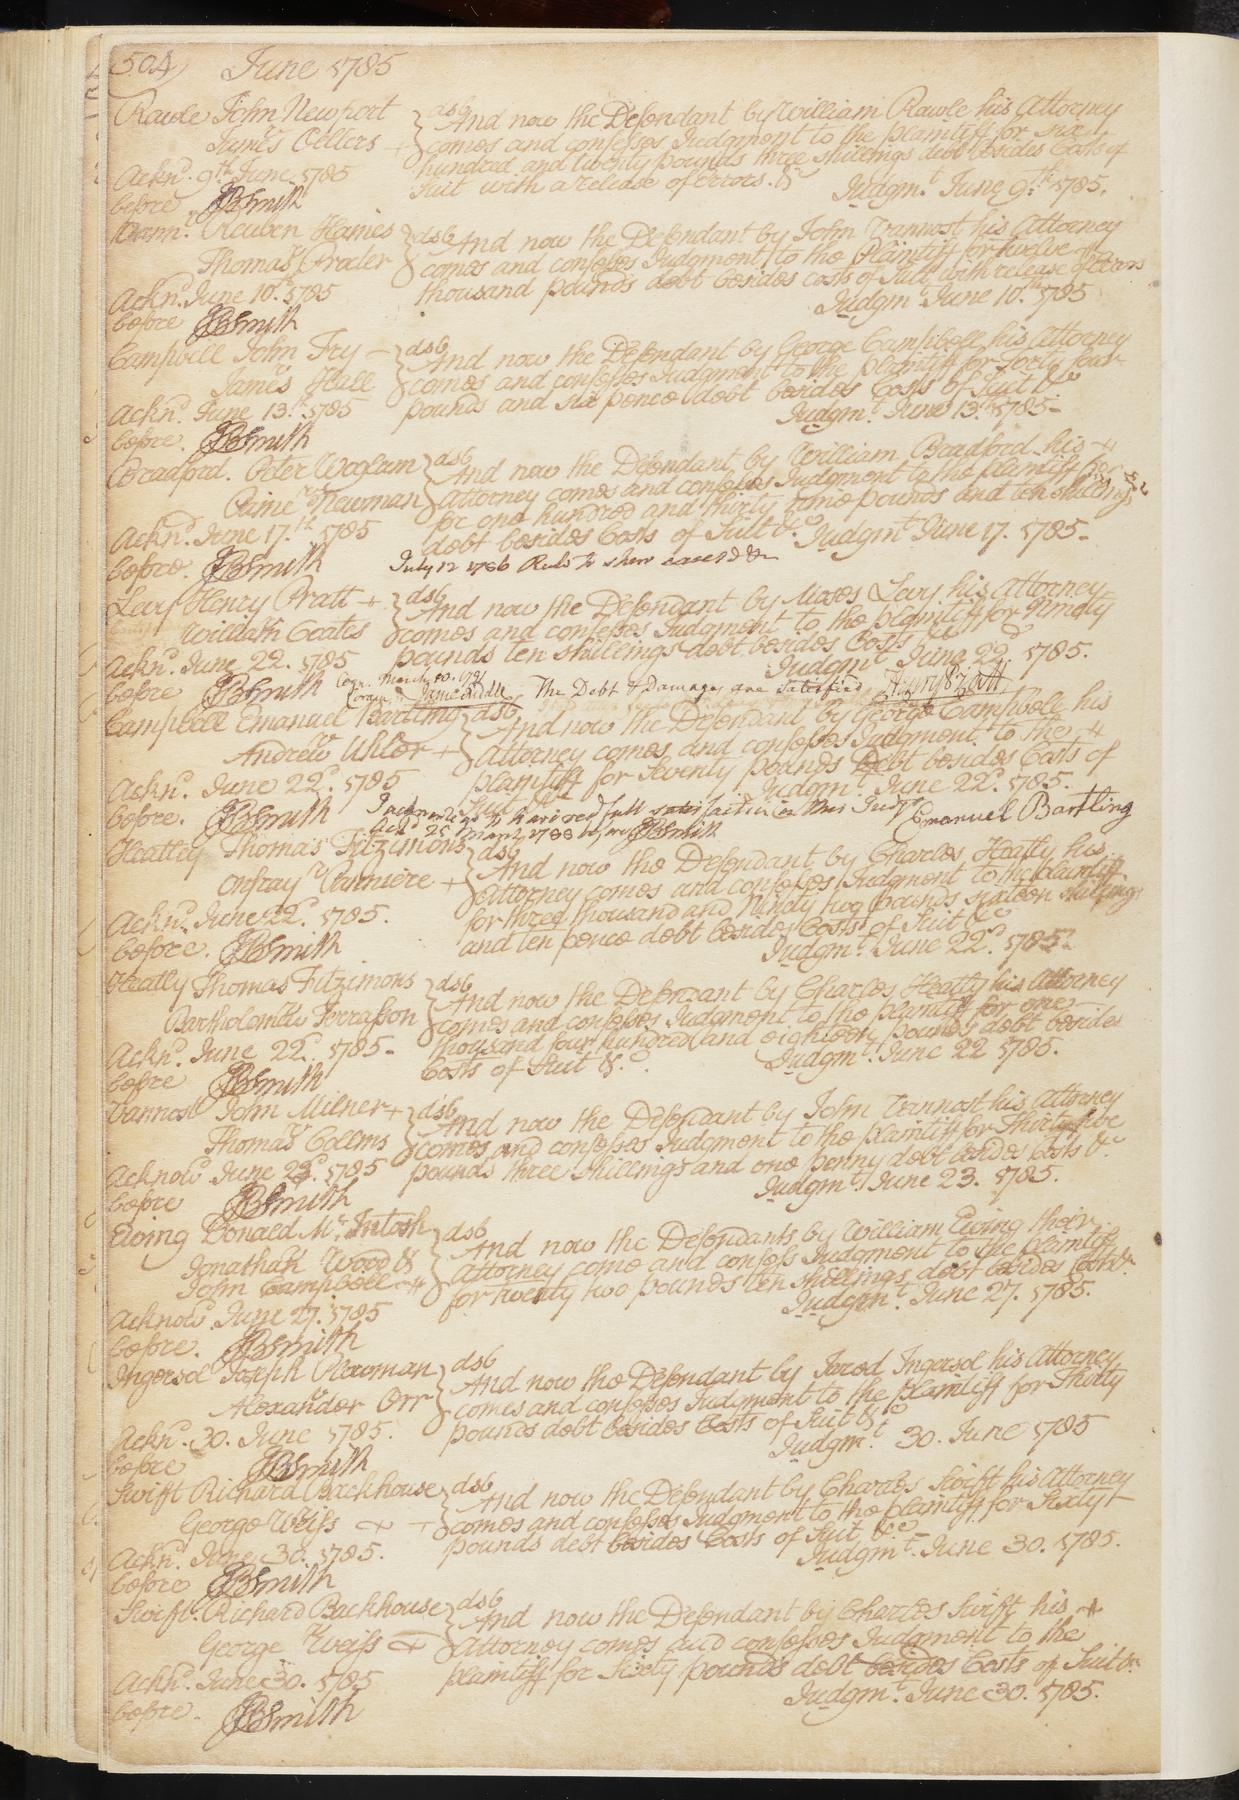 504) June 1785
Rawle John Newport } dsb And now the Defendant by William Rawle his Attorney
vs James Cellers } comes and confesses Judgment to the plaintiff for six
hundred and twenty pounds three shillings debt besides Costs of
Ackn.d 9th June 1785 Suit with a release of errors. &c Judgm.t June 9.th 1785.
before JBSmith
Reuben Haines } dsb And now the Defendant by John Vannost his Attorney
vs Thomas } comes and confesses Judgment to the Plaintiff for twelve
Ackn.d June 10.th 1785 thousand pounds debt besides costs of Suit with release of Errors
before JBSmith Judgm.t June 10.th 1785
Campbell John Fry } dsb And now the Defendant by George Campbell his Attorney
vs James Hall } comes and confesses Judgment to the plaintiff for Forty four
Ackn.d June 13.th 1785 pounds and six pence debt besides Costs of Suit &c
before. JBSmith Judgm.t June 13.th 1785-
Bradford. Peter Woglam } dsb And now the Defendant by William Bradford his
vs Newman } Attorney comes and confesses Judgment to the plaintiff
for one hundred and thirty pounds and ten shillings
Ackn.d June 17.th 1785 debt besides Costs of Suit &c. Judgm.t June 17. 1785-
before. JBSmith July 12 1786 Rule to shew cause &c
Levy Henry Pratt } dsb And now the Defendant by Moses Levy his Attorney
vs William Coates } comes and confesses Judgment to the plaintiff for Ninety
Ackn.d June 22. 1785 pounds ten shillings debt besides Costs Judgm.t June 22.d 1785.
before JBSmith March 10. 1791 The Debt & Damages are satisfied
Campbell Emanuel Bartling } dsb And now the Defendant by George Campbell his
vs Andrew Uhler } Attorney comes and confesses Judgment to the
plaintiff for Seventy pounds Debt besides Costs of
Ackn.d June 22.d 1785 Suit &c Judgm.t June 22.d 1785.
before. JBSmith full satisfaction in this Judg.t Emanuel Bartling
25 March 1788 before JBSmith
Heatley Thomas Fitzimons } dsb And now the Defendant by Charles Heatly his
vs Vanniere } Attorney comes and confesses Judgment to the plaintiff
for three thousand and Ninety two pounds sixteen shillings
Ackn.d June 22.d 1785. and ten pence debt besides Costs of Suit &c
before. JBSmith Judgm.t June 22.d 1785.
Heatly Thomas Fitzimons } dsb And now the Defendant by Charles Heatly his Attorney
vs Bartholomew Terrasson } comes and confesses Judgment to the plaintiff for one
Ackn.d June 22.d 1785- thousand four hundred and eighteen pounds debt besides
before JBSmith Costs of Suit &c. Judgm.t June 22 1785.
Vannost John Milner } dsb And now the Defendant by John Vannost his Attorney
vs Thomas Collins } comes and confesses Judgment to the plaintiff for Thirty five
Acknow.d June 23.d 1785 pounds three shillings and one penny debt besides Costs &c
before JBSmith Judgm.t June 23. 1785.
Ewing Donald Mc.Intosh } dsb And now the Defendants by William Ewing their
vs Jonathan Wood & } Attorney come and confess Judgment to the plaintiff
John Campbell } for twenty two pounds ten shillings debt besides Costs &c
Acknow.d June 27. 1785 Judgm.t June 27. 1785.
before. JBSmith
Ingersol Joseph Newman } dsb And now the Defendant by Jared Ingersol his Attorney
vs Alexander Orr } comes and confesses Judgment to the plaintiff for Thirty
pounds debt besides Costs of Suit &c
Ackn.d 30. June 1785. Judgm.t 30. June 1785
before JBSmith
Swift Richard Backhouse } dsb And now the Defendant by Charles Swift his Attorney
vs George Weiss } comes and confesses Judgment to the plaintiff for Sixty
Ackn.d June 30. 1785. pounds debt besides Costs of Suit &c
before JBSmith Judgm.t June 30. 1785.
Swift. Richard Backhouse } dsb And now the Defendant by Charles Swift his
vs George Weiss } Attorney comes and confesses Judgment to the
Ackn.d June 30. 1785 plaintiff for Sixty pounds debt besides Costs of Suit &c
before. JBSmith Judgm.t June 30. 1785.